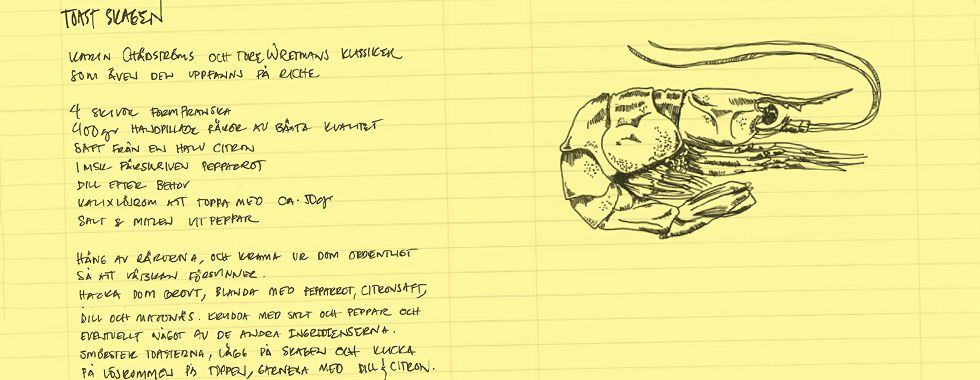 TOAST SKAGEN
KARIN OCH TORE WRETMANS KLASSIKER
SOM ÄVEN DEN UPPFANNS PÅ RICHE
4 SKIVOR FORMFRANSKA
400gr HANDPILLADE RÄKOR AV BÄSTA KVALITET
SAFT FRÅN EN HALV CITRON
1 MSK FÄRSKRIVEN PEPPARROT
DILL EFTER BEHOV
KALIXLÖJROM ATT TOPPA MED CA. 50gr
SALT & MALEN VITPEPPAR
HÄNG AV RÄKORNA, OCH KRAMA UR DOM ORDENTLIGT
SÅ ATT VÄTSKAN FÖRSVINNER.
HACKA DOM GROVT, BLANDA MED PEPPARROT, CITRONSAFT,
DILL OCH MAJONÄS. KRYDDA MED SALT OCH PEPPAR OCH
EVENTUELLT NÅGOT AV DE ANDRA INGREDIENSERNA.
SMÖRSTEK TOASTERNA, LÄGG PÅ SKAGEN OCH KLICKA
PÅ LÖJROMMEN PÅ TOPPEN, GARNERA MED DILL & CITRON.